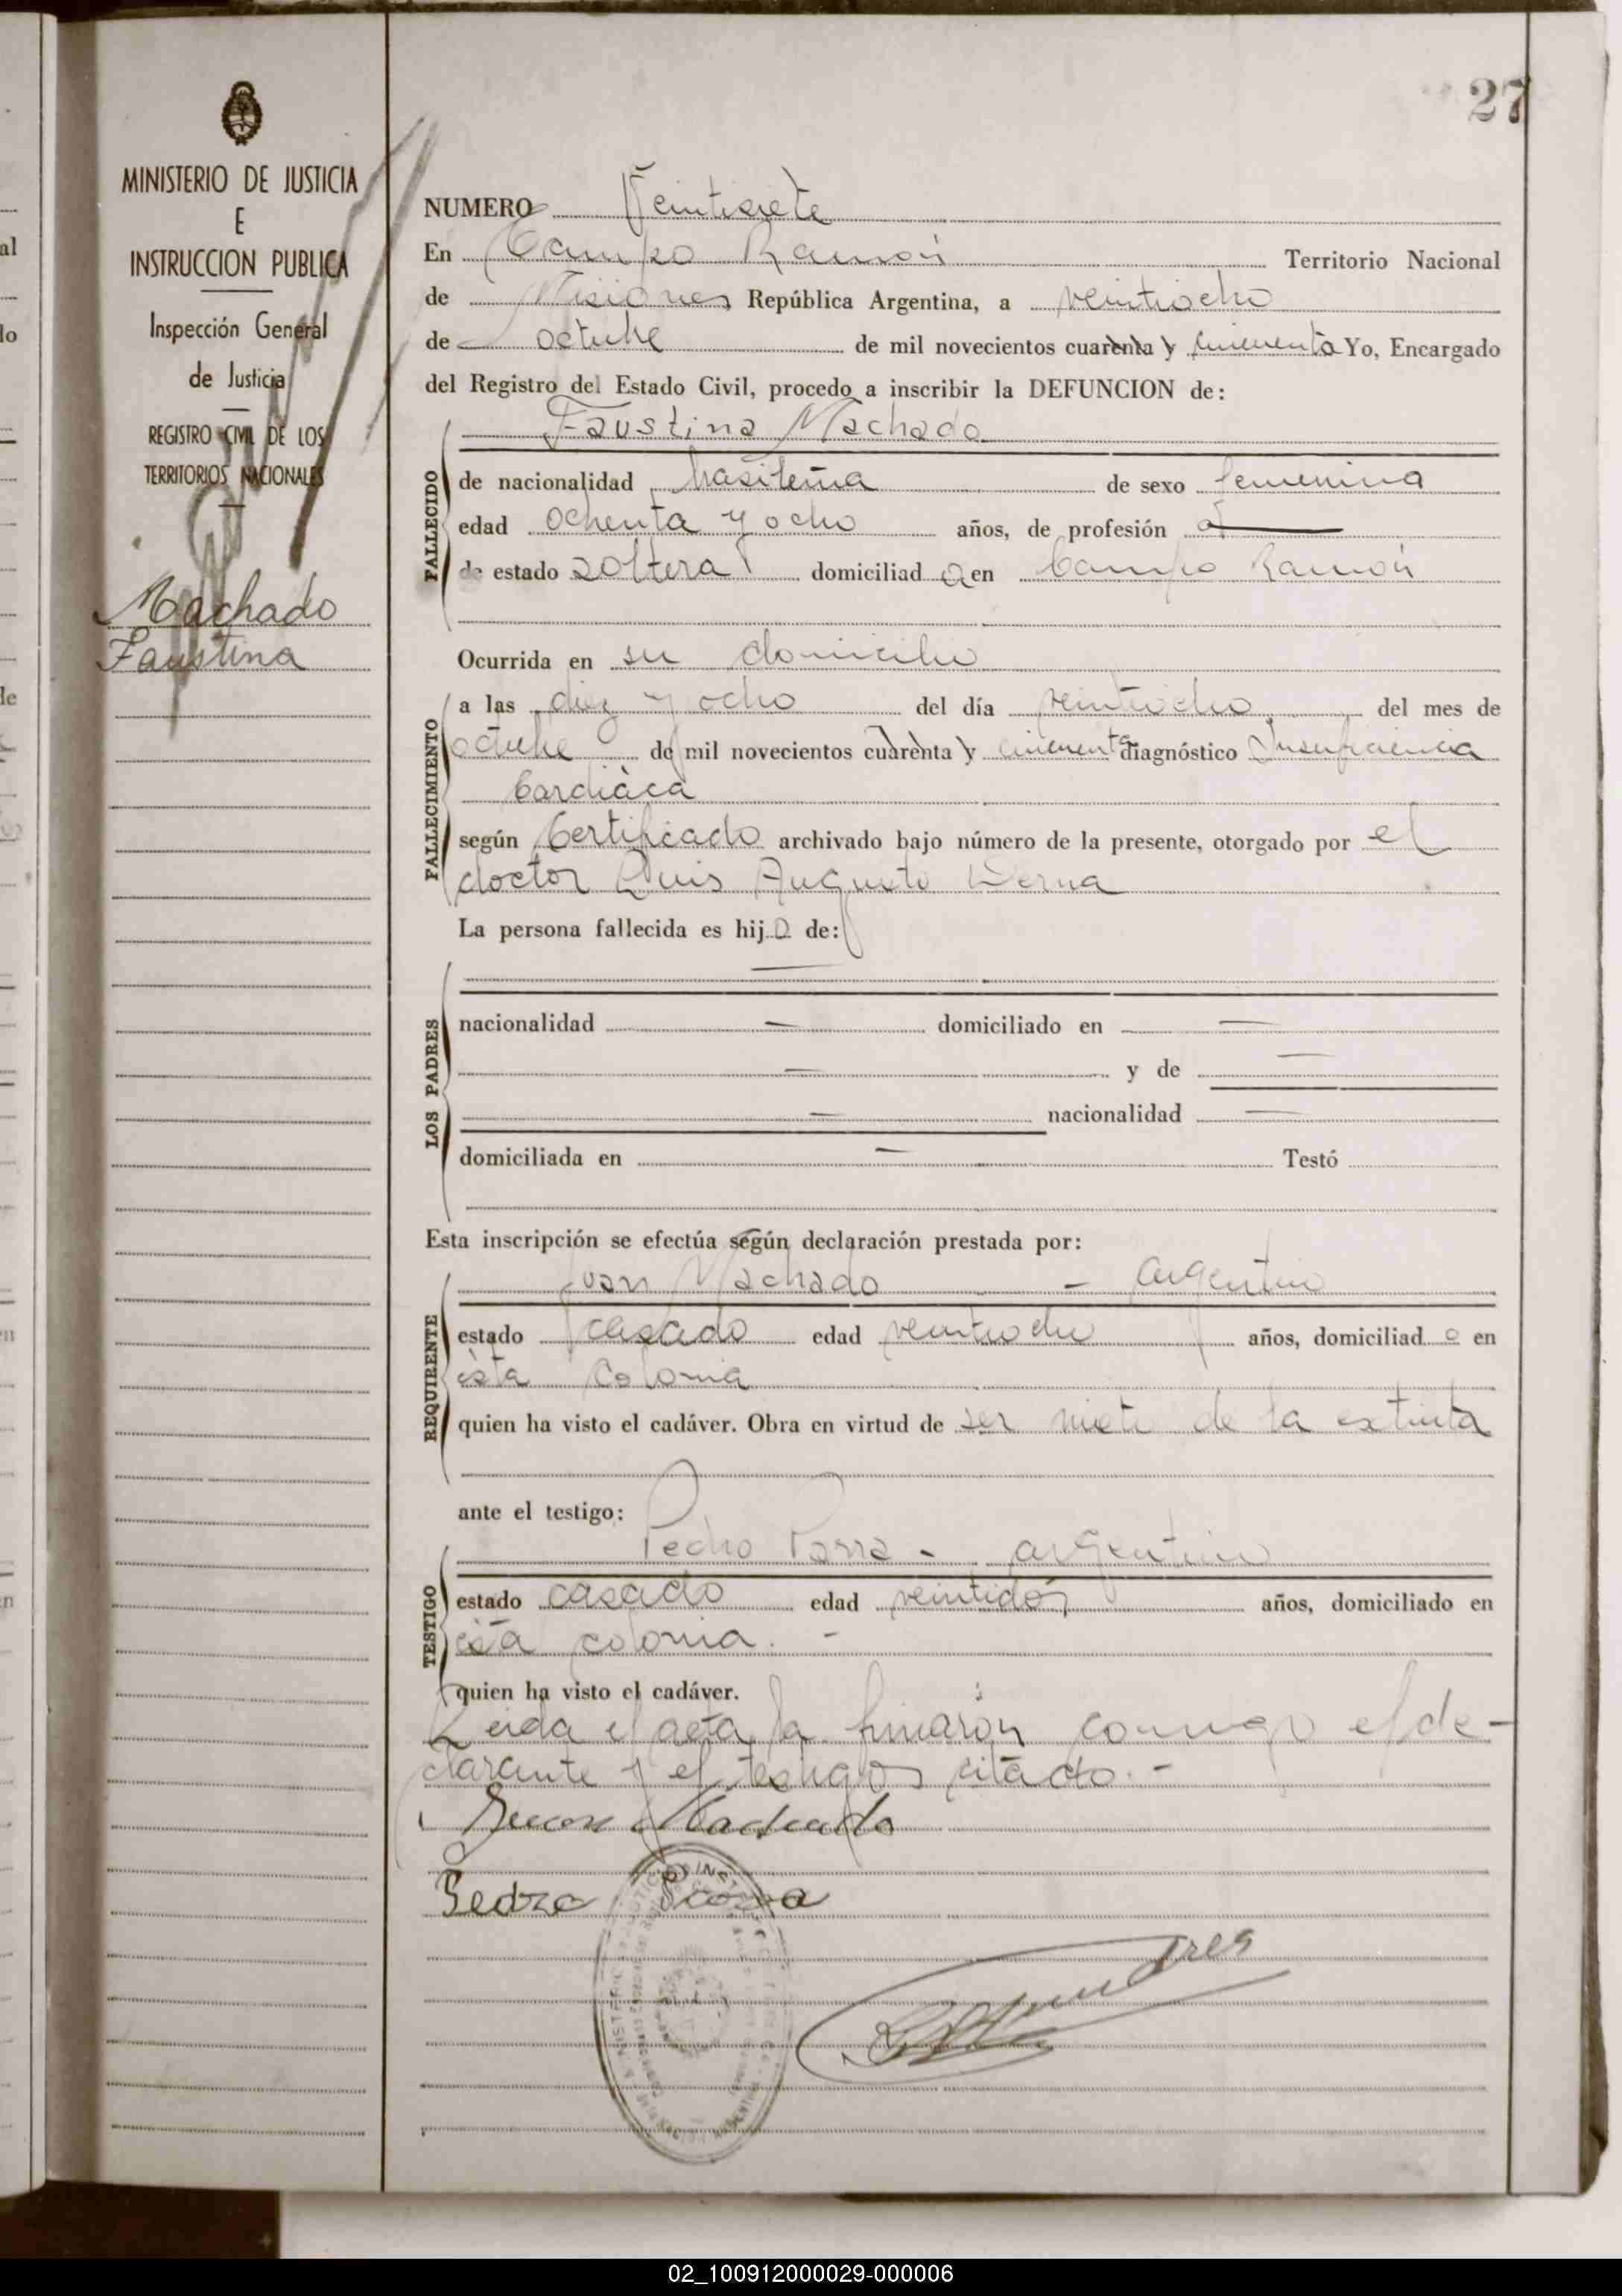 27
MINISTERIO DE JUSTICIA
E
INSTRUCCION PUBLICA
Inspección General
de Justicia
REGISTRO CIVIL DE LOS
TERRITORIOS NACIONALES
Machado
Faustina
NUMERO Veintisiete
En Campo Ramón Territorio Nacional
de Misiones República Argentina, a veintiocho
de octubre de mil novecientos cuarenta y cincuenta Yo, Encargado
del Registro del Estado Civil, procedo a inscribir la DEFUNCION de:
Faustina Machado
FALLECIDO
de nacionalidad brasileña de sexo femenina
edad ochenta y ocho años, de profesión
de estado soltera domiciliada en Campo Ramón
Ocurrida en su domicilio
FALLECIMIENTO
a las diez y ocho del día veintiocho del mes de
octubre de mil novecientos cuarenta y cincuenta diagnóstico Insuficiencia
Cardiaca
según Certificado archivado bajo número de la presente, otorgado por el
doctor Luis Augusto Derna
La persona fallecida es hija de:
LOS PADRES
nacionalidad — domiciliado en —
— y de —
— nacionalidad —
domiciliada en — Testó
Esta inscripción se efectúa según declaración prestada por:
REQUIRENTE
Juan Machado - argentino
estado casado edad veintiocho años, domiciliado en
ésta colonia
quien ha visto el cadáver. Obra en virtud de ser nieto de la extinta
ante el testigo:
TESTIGO
Pedro Parra - argentino
estado casado edad veintidós años, domiciliado en
ésta colonia. -
quien ha visto el cadáver.
Leida el acta la firmarón conmigo el de-
clarante y el testigo citado. -
Juan Machado
Pedro Parra
02_100912000029-000006